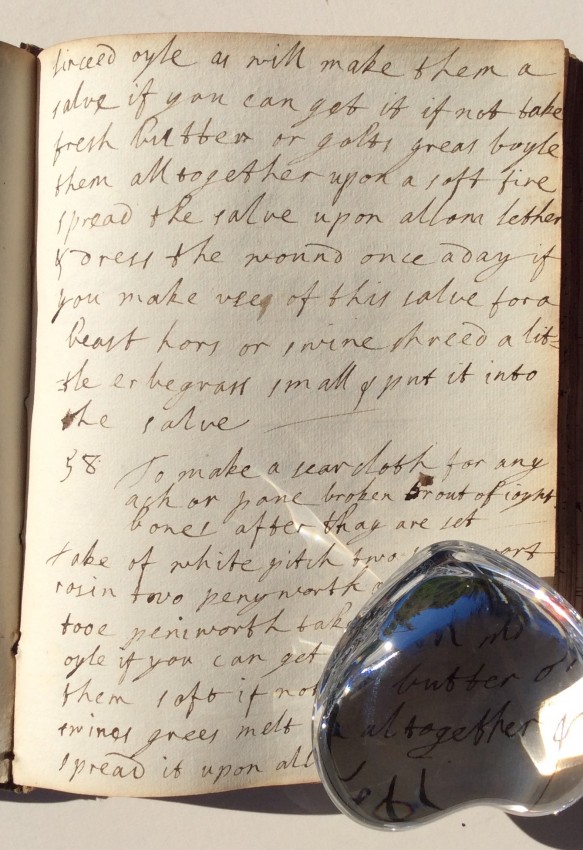 linceed oyle as will make them a
salve if you can get it if not take
fresh butter or golts greas boyle
them altogether upon a soft fire
spread the salve upon allom lether
& dress the wound once aday if
you make vse of this salve for a
beast hors or swine shreed a lit=
=tle erbegrass small & put it into
the salve
58 To make a searcloth for any
ach or pane broken or out of ioynt
bones after thay are set
take of white pitch two
rosin two penyworth
tooe peniworth tak
oyle if you can get
them soft if not butter or
swines grees melt altogether &
spread it upon all